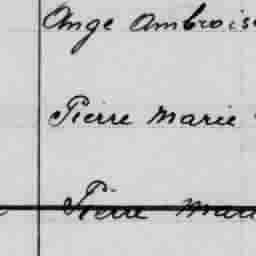 Ange Ambrois
Pierre Marie
Pierre Mari